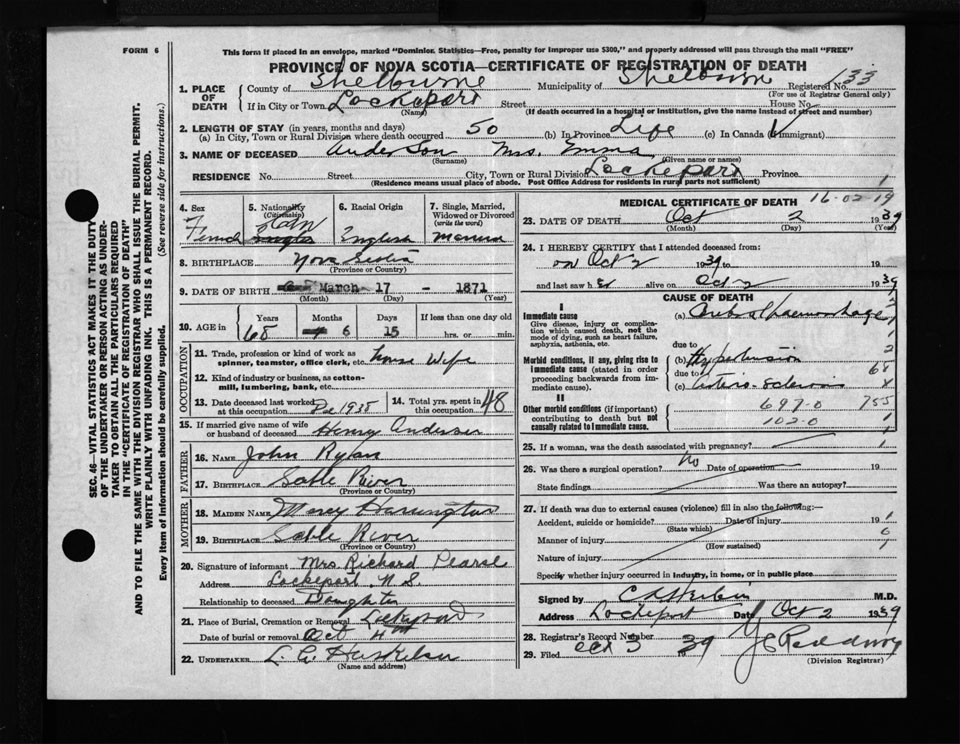 FORM 6
This form if placed in an envelope, marked "Dominion Statistics—Free, penalty for improper use $300," and properly addressed will pass through the mail "FREE"
PROVINCE OF NOVA SCOTIA—CERTIFICATE OF REGISTRATION OF DEATH
1. PLACE OF DEATH County of Shelburne Municipality of Shelburne Registered No. 133
(For use of Registrar General only)
If in City or Town Lockeport Street House No.
(Name) (If death occurred in a hospital or institution, give the name instead of street and number)
2. LENGTH OF STAY (in years, months and days)
(a) In City, Town or Rural Division where death occurred 50 (b) In Province Life (c) In Canada (if immigrant)
3. NAME OF DECEASED Anderson Mrs. Emma
(Surname) (Given name or names)
RESIDENCE No. Street City, Town or Rural Division Lockeport Province
(Residence means usual place of abode. Post Office Address for residents in rural parts not sufficient)
4. Sex 5. Nationality (Citizenship) 6. Racial Origin 7. Single, Married, Widowed or Divorced (write the word)
Female Can English Married
8. BIRTHPLACE Nova Scotia
(Province or Country)
9. DATE OF BIRTH March 17 - 1871
(Month) (Day) (Year)
10. AGE in Years Months Days If less than one day old
68 6 15 hrs. or min.
OCCUPATION
11. Trade, profession or kind of work as spinner, teamster, office clerk, etc. House Wife
12. Kind of industry or business, as cotton-mill, lumbering, bank, etc.
13. Date deceased last worked at this occupation Dec 1938 14. Total yrs. spent in this occupation 48
15. If married give name of wife or husband of deceased Henry Anderson
FATHER
16. Name John Rylan
17. Birthplace Sable River
(Province or Country)
MOTHER
18. MAIDEN NAME Mercy Harrington
19. BIRTHPLACE Sable River
(Province or Country)
20. Signature of informant Mrs Richard Pearse
Address Lockeport N.S.
Relationship to deceased Daughter
21. Place of Burial, Cremation or Removal Lockeport
Date of burial or removal Oct 4th
22. UNDERTAKER
(Name and address)
MEDICAL CERTIFICATE OF DEATH 16-02-19
23. DATE OF DEATH Oct 2 1939
(Month) (Day) (Year)
24. I HEREBY CERTIFY that I attended deceased from:
on Oct 2 1939 to 19
and last saw her alive on Oct 2 1939
CAUSE OF DEATH
I
Immediate cause (a) Cerebral haemorrhage
Give disease, injury or complication which caused death, not the mode of dying, such as heart failure, asphyxia, asthenia, etc.
due to
Morbid conditions, if any, giving rise to immediate cause (stated in order proceeding backwards from immediate cause). (b) Hypertension
due to
(c) Arterio-sclerosis
II
Other morbid conditions (if important) contributing to death but not causally related to immediate cause. 697-0 755
102-0
25. If a woman, was the death associated with pregnancy?
26. Was there a surgical operation? No Date of operation 19
State findings Was there an autopsy?
27. If death was due to external causes (violence) fill in also the following:—
Accident, suicide or homicide? Date of injury 19
(State which)
Manner of injury
(How sustained)
Nature of injury
Specify whether injury occurred in industry, in home, or in public place
Signed by M.D.
Address Lockeport Date Oct 2 1939
28. Registrar's Record Number
29. Filed Oct 3 1939
(Division Registrar)
SEC. 46—VITAL STATISTICS ACT MAKES IT THE DUTY OF THE UNDERTAKER OR PERSON ACTING AS UNDERTAKER TO OBTAIN ALL THE PARTICULARS REQUIRED IN THE "CERTIFICATE OF REGISTRATION OF DEATH" AND TO FILE THE SAME WITH THE DIVISION REGISTRAR WHO SHALL ISSUE THE BURIAL PERMIT.
WRITE PLAINLY WITH UNFADING INK. THIS IS A PERMANENT RECORD.
Every item of information should be carefully supplied. (See reverse side for instructions.)